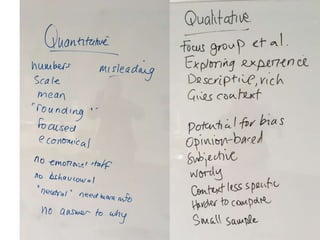 Quantitative
numbers misleading
Scale
mean
"rounding"
focused
economical
no emotional stuff
no behavioural
"neutral" need more info
no answer to why
Qualitative
Focus group et al.
Exploring experience
Descriptive, rich
Gives context
Potential for bias
Opinion-based
Subjective
wordy
Context less specific
Harder to compare
Small sample